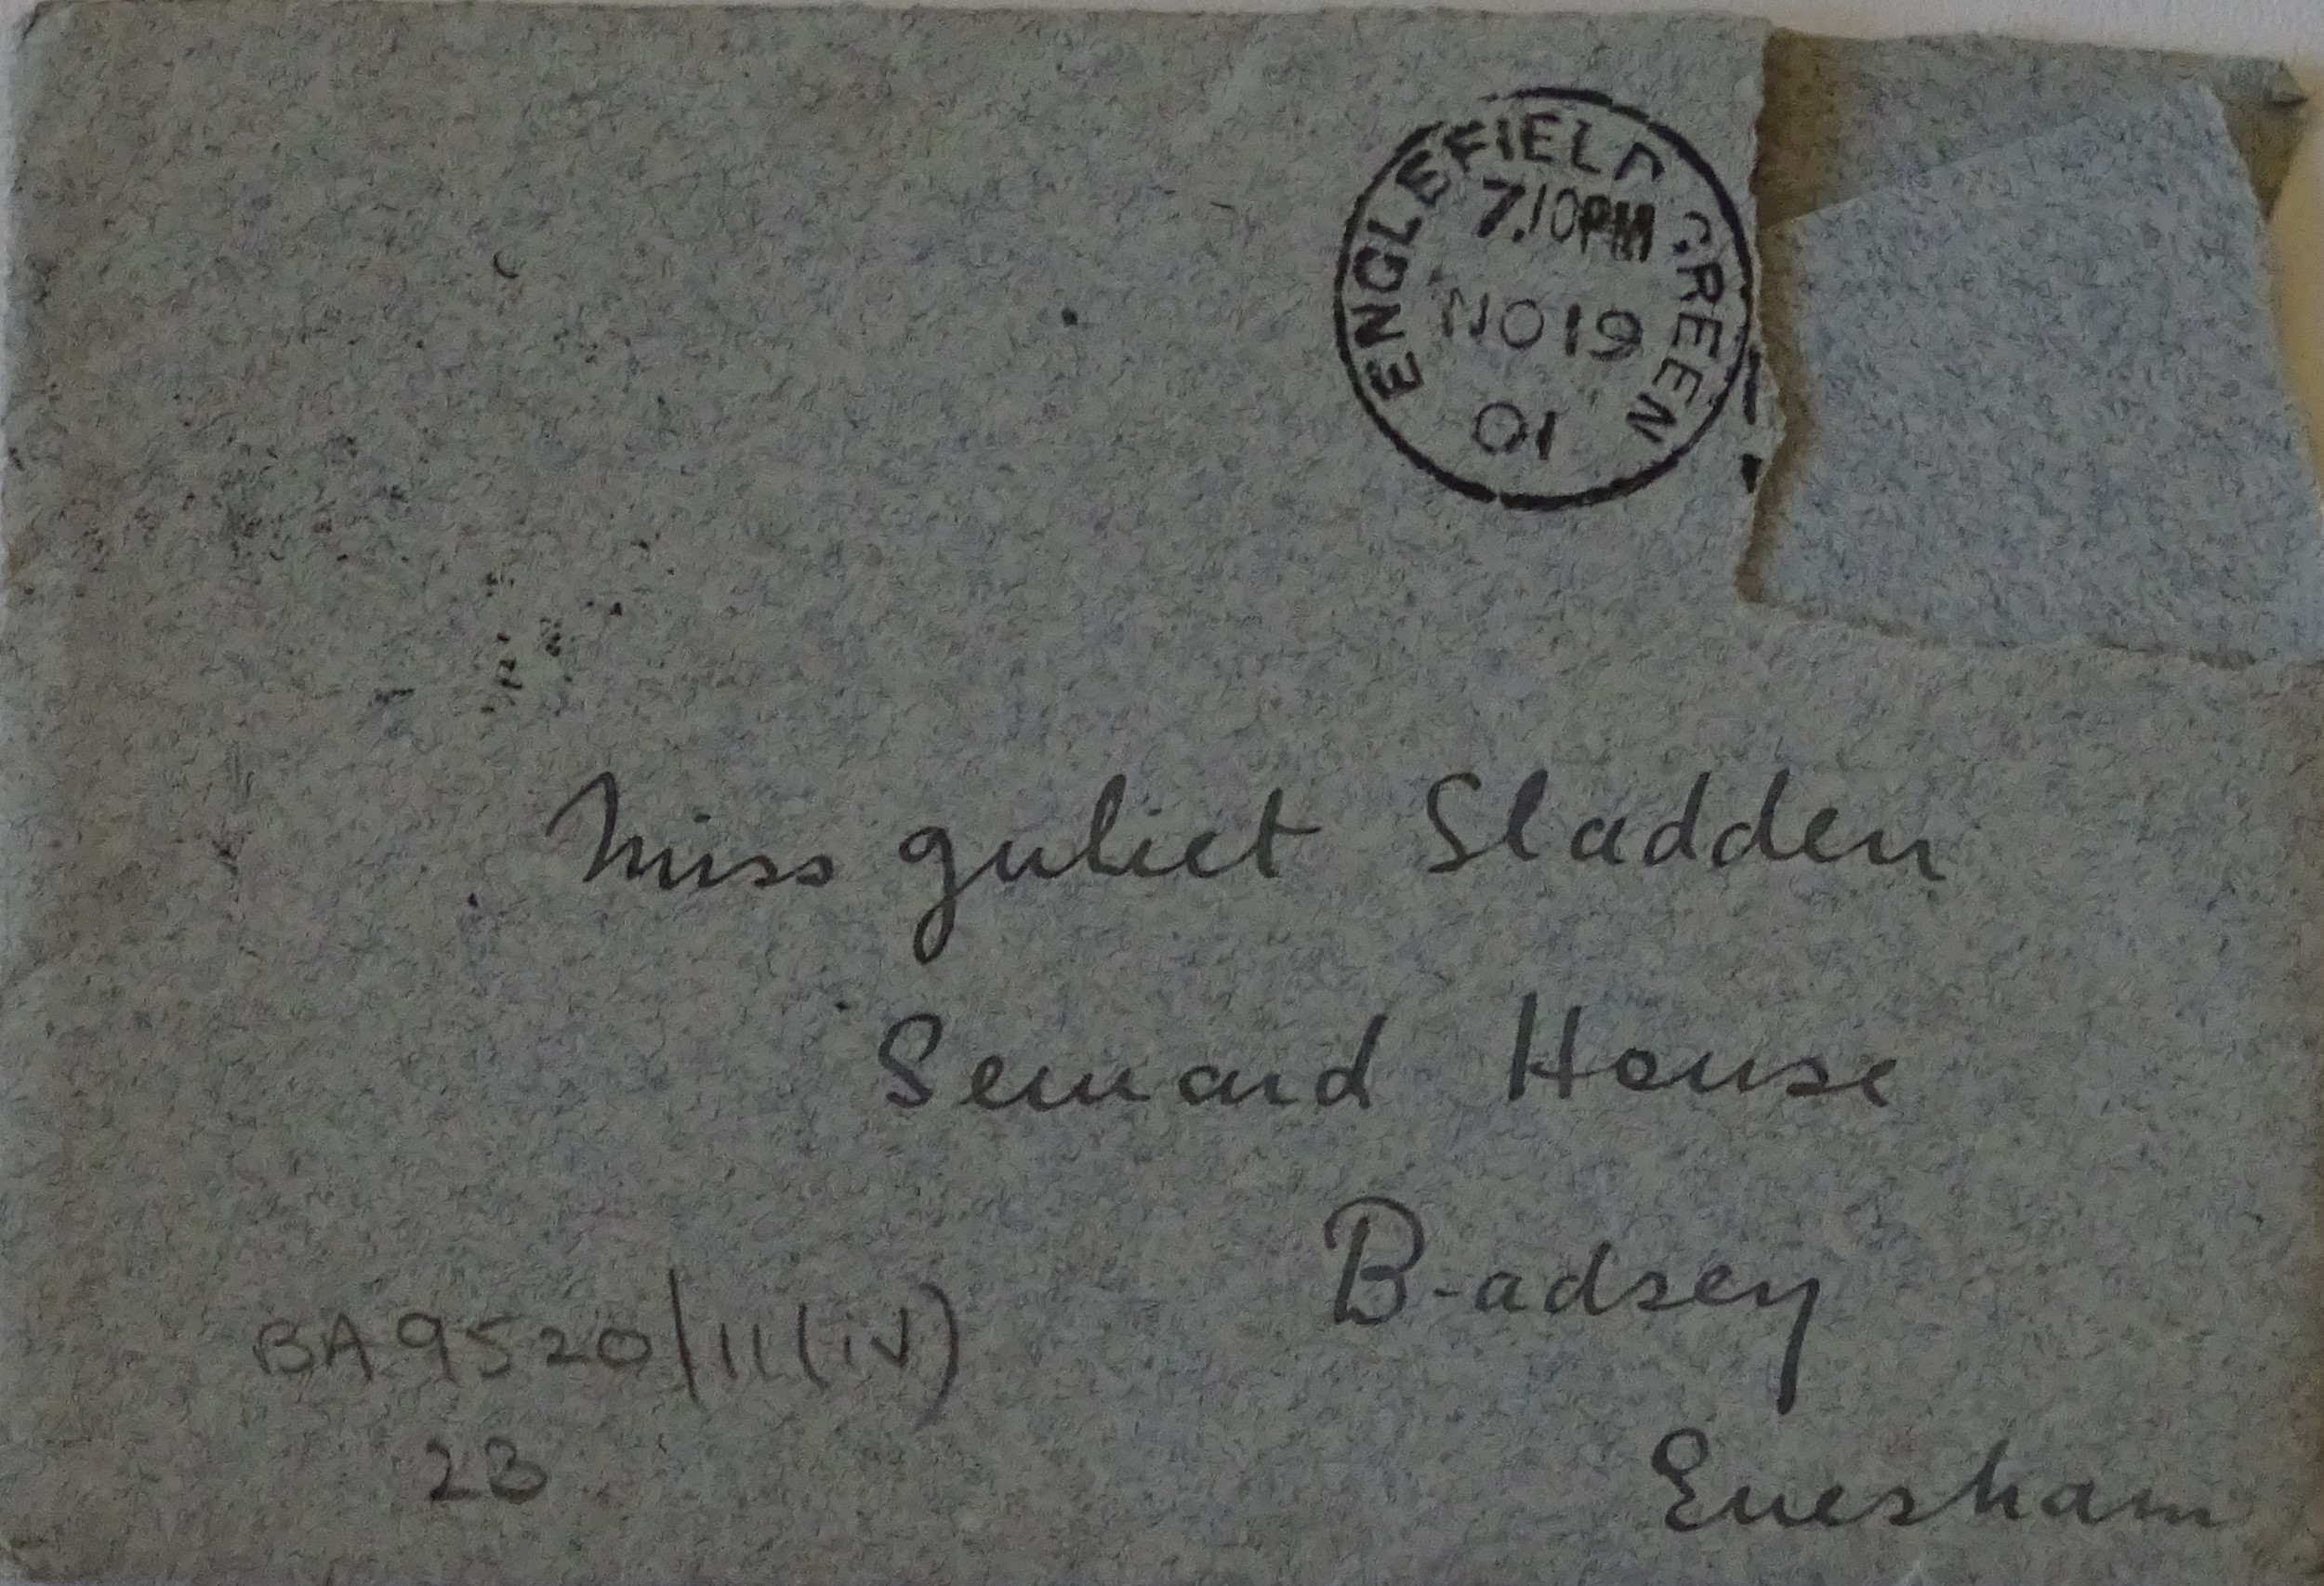 ENGLEFIELD GREEN
7.10PM
NO 19
01
Miss Juliet Sladden
Seward House
Badsey
Evesham
BA 9520/11(iv)
23